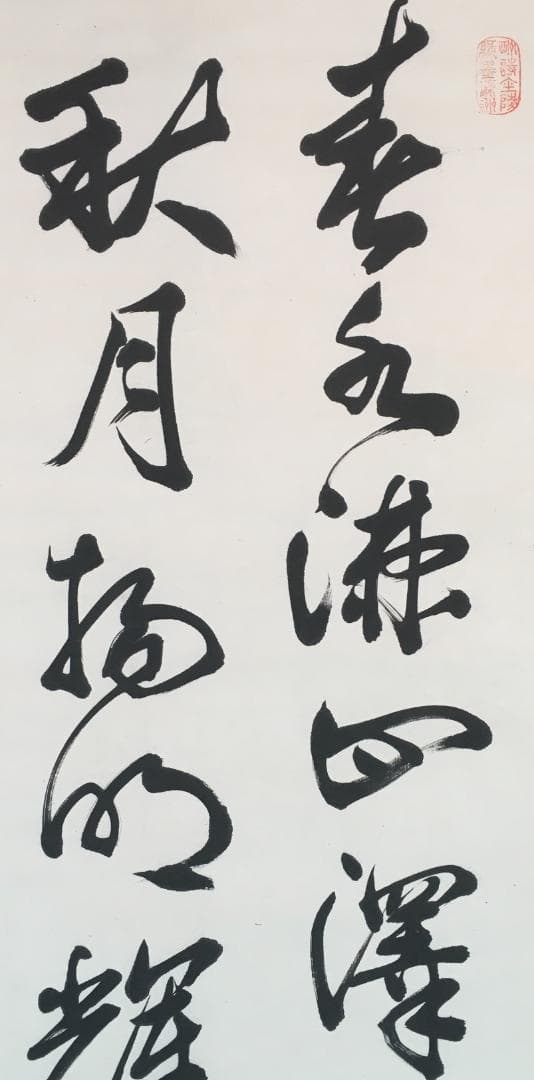 春水滿四澤
秋月揚明輝